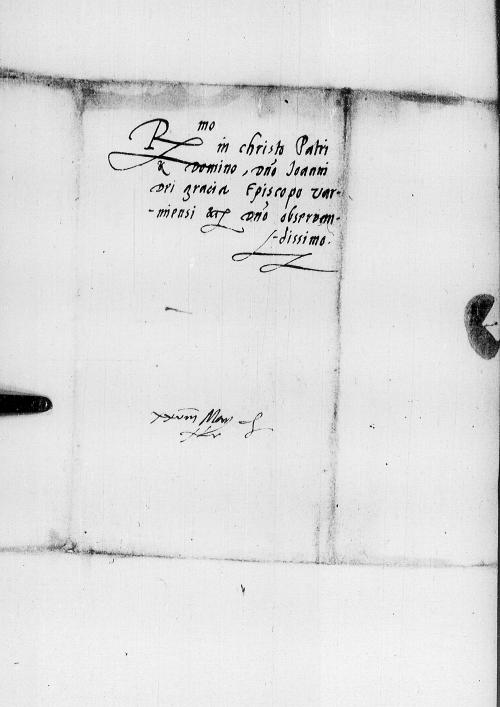 Rmo
in christo Patri
& Domino, dno Ioanni
Dei gracia Episcopo Var-
-miensi &c dno observan-
-dissimo.
xxviii